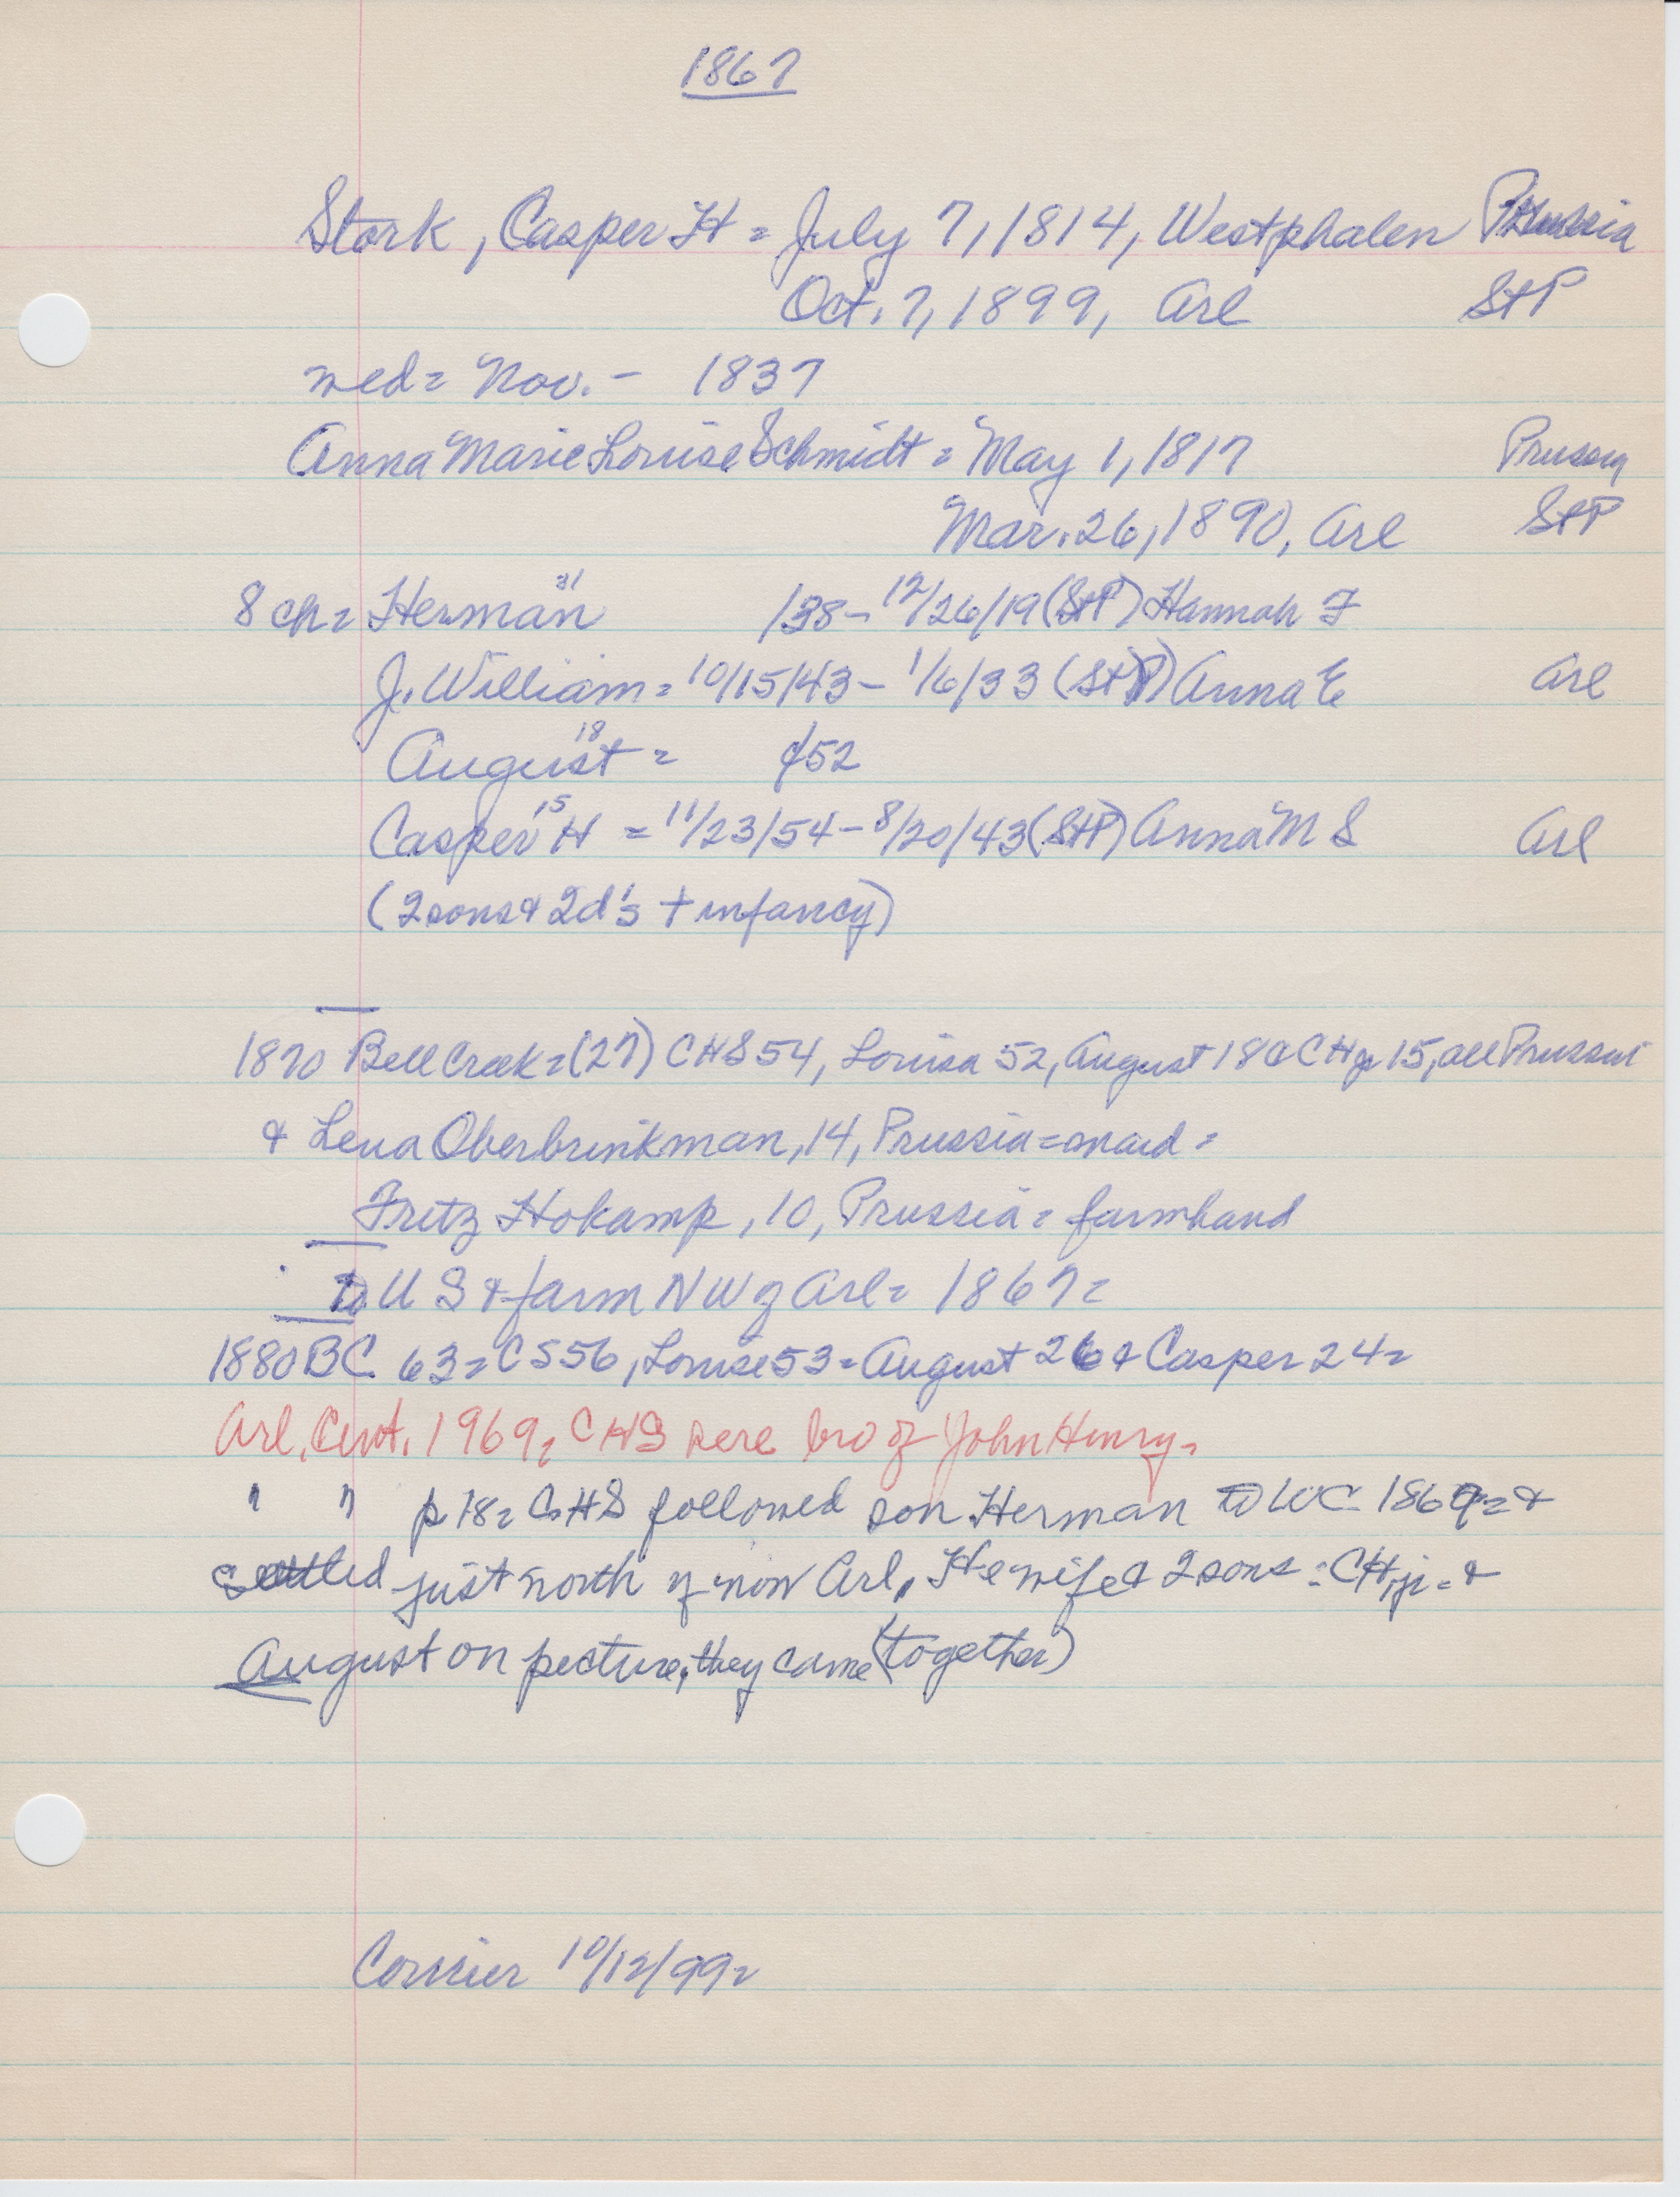 1867
Stork, Casper H = July 7, 1814, Westphalen Prussia
Oct. 7, 1899, Arl StP
wed = Nov. - 1837
Anna Marie Louise Schmidt = May 1, 1817 Prussia
Mar. 26, 1890, Arl StP
8 ch = Herman 31 /38 - 12/26/19 (StP) Hannah F
J. William = 10/15/43 - 1/6/33 (StP) Anna E Arl
August 18 = /52
Casper H 15 = 11/23/54 - 8/20/43 (StP) Anna M S Arl
(2 sons & 2 d's + infancy)
1870 Bell Creek = (27) CHS 54, Louisa 52, August 18 & CH jr 15, all Prussia
& Lena Oberbrinkman, 14, Prussia = maid =
Fritz Hokamp, 10, Prussia = farmhand
to U S & farm NW of Arl = 1867 =
1880 BC 63 = CS 56, Louise 53 = August 26 & Casper 24 =
Arl. Cent. 1969, CHS were bro of John Henry =
" " p 18 = CHS followed son Herman to WC 1869 = &
settled just north of now Arl, He wife & 2 sons = CH, jr = &
August on picture, they came (together)
Courier 10/12/99 =